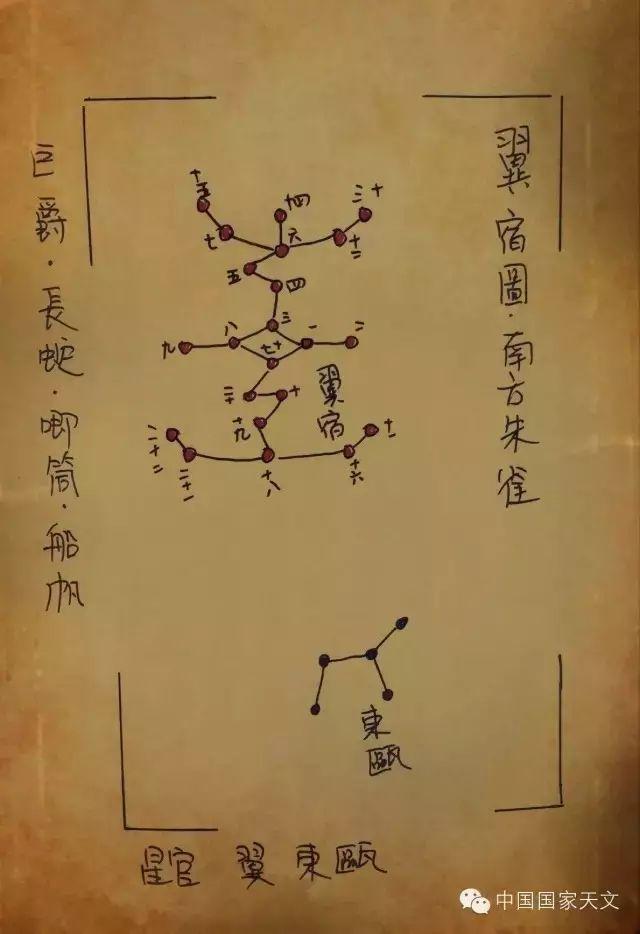 翼宿圖·南方朱雀
巨爵·長蛇·唧筒·船帆
十五
七
十四
六
十三
十二
五
四
三
九
八
一
二
十七
翼宿
二十
十
十九
十一
二十二
二十一
十八
十六
東甌
星官 翼 東甌
中国国家天文